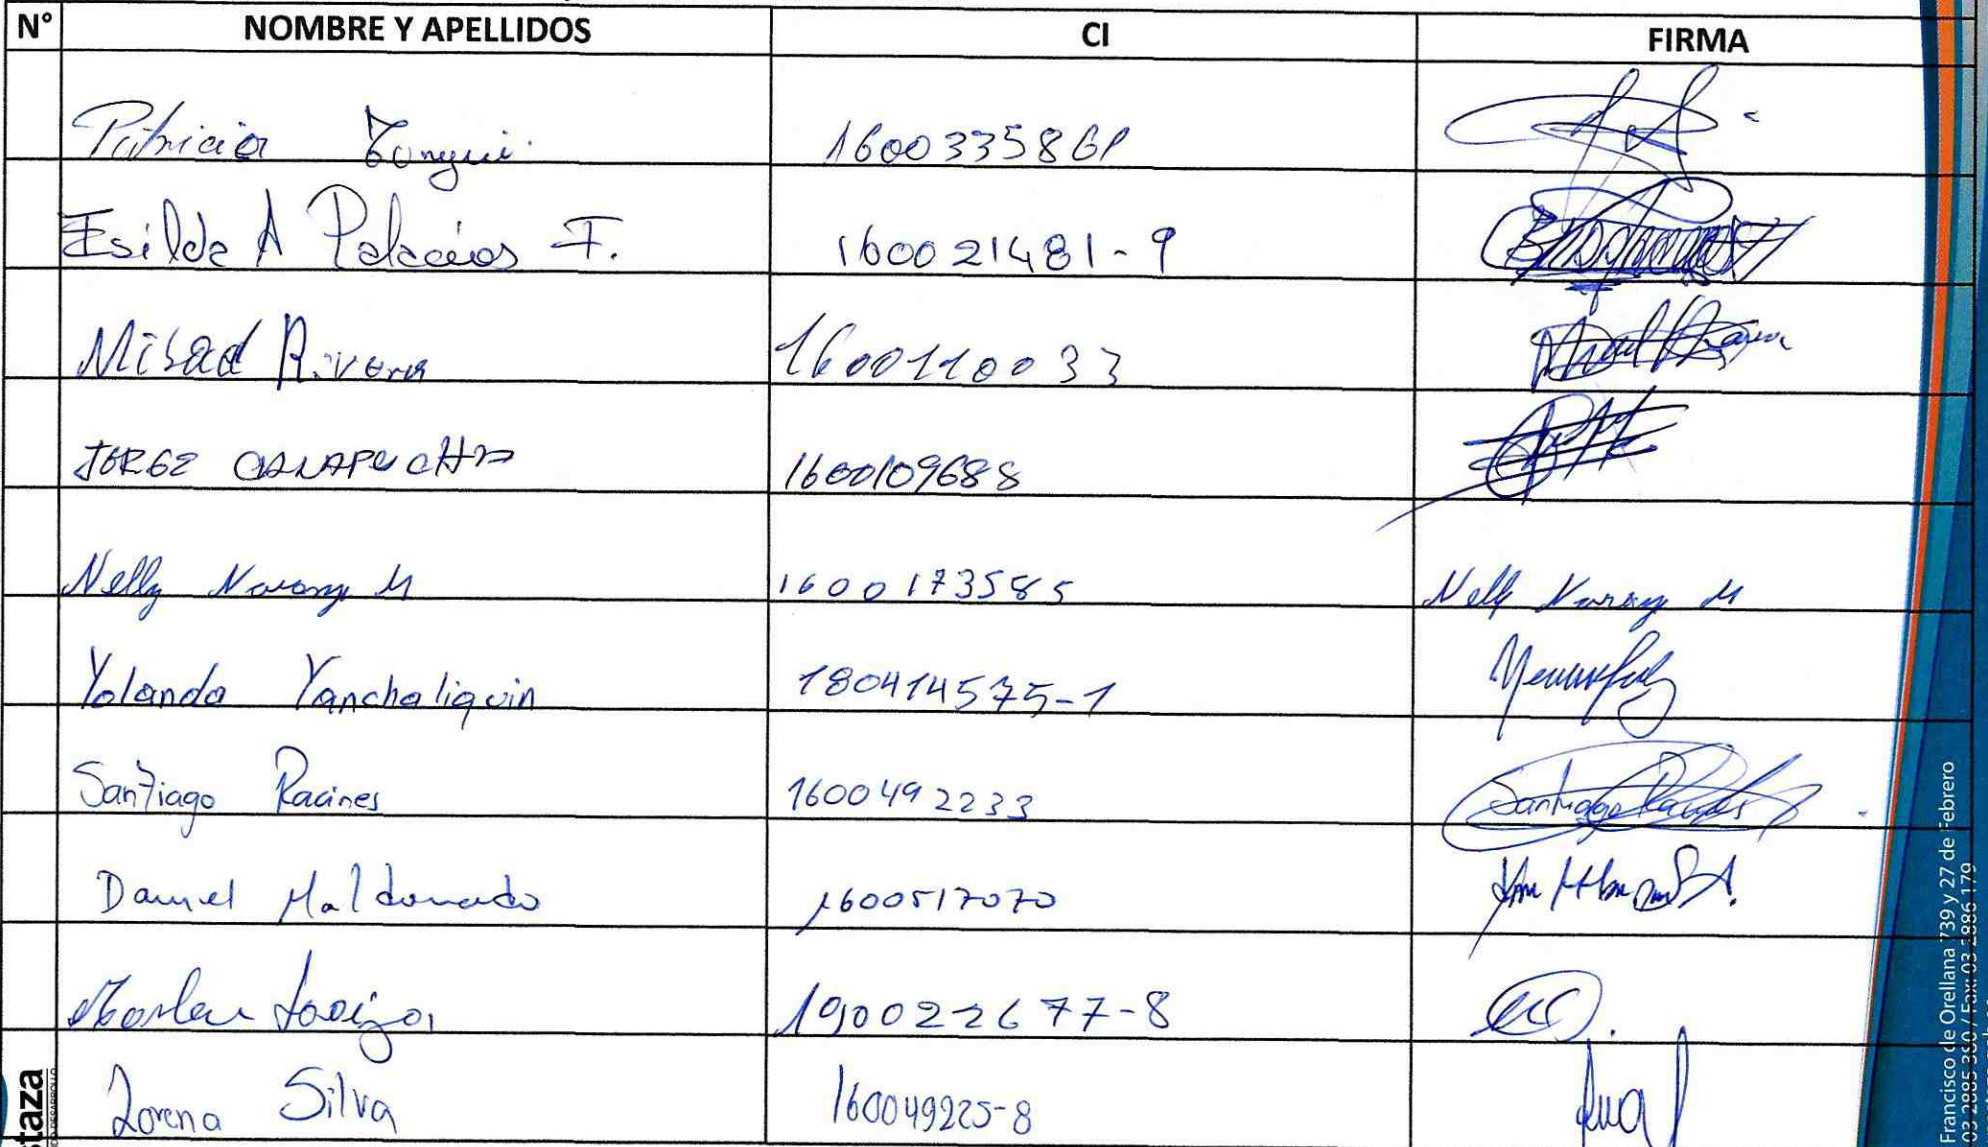 N° NOMBRE Y APELLIDOS CI FIRMA
Patricia Tunqui 1600335861
Esilda A Palacios F. 160021481-9
Misad Rivera 1600110033
JORGE 1600109688
Nelly Naranj M 1600173585 Nelly Naranj M
Yolanda Yanchaliquin 180414575-1
Santiago Racines 1600492233 Santiago Racines
Daniel Maldonado 1600517070
Marlen 190022677-8
Lorena Silva 160049225-8
staza
Francisco de Orellana 739 y 27 de Febrero
03 2885 380 / Fax: 03 2886 179